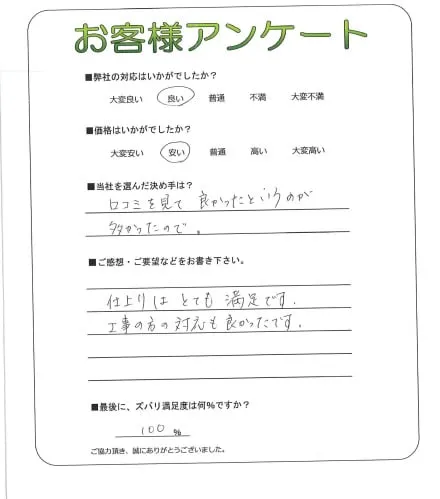 お客様アンケート
■弊社の対応はいかがでしたか？
大変良い 良い 普通 不満 大変不満
■価格はいかがでしたか？
大変安い 安い 普通 高い 大変高い
■当社を選んだ決め手は？
口コミを見て 良かったというのが
多かったので。
■ご感想・ご要望などをお書き下さい。
仕上りは とても 満足です.
工事の方の対応も良かったです.
■最後に、ズバリ満足度は何%ですか？
100 %
ご協力頂き、誠にありがとうございました。